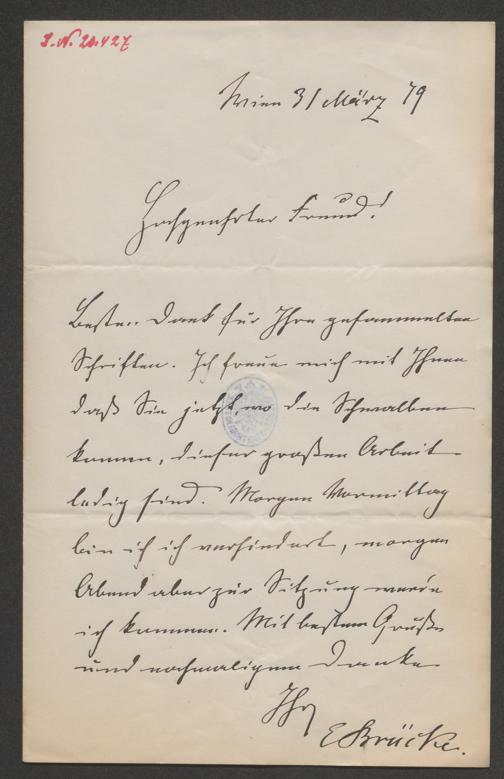 I.N. 20.427
Wien 31 März 79
Hochgeehrter Freund!
Besten Dank für Ihre gesammelten
Schriften. Ich freue mich mit Ihnen
daß Sie jetzt, wo die Schwalben
kommen, dieser großen Arbeit
ledig sind. Morgen Vormittag
bin ich ich verhindert, morgen
Abend aber zur Sitzung werde
ich kommen. Mit bestem Gruße
und nochmaligem Danke
Ihr
E Brücke.